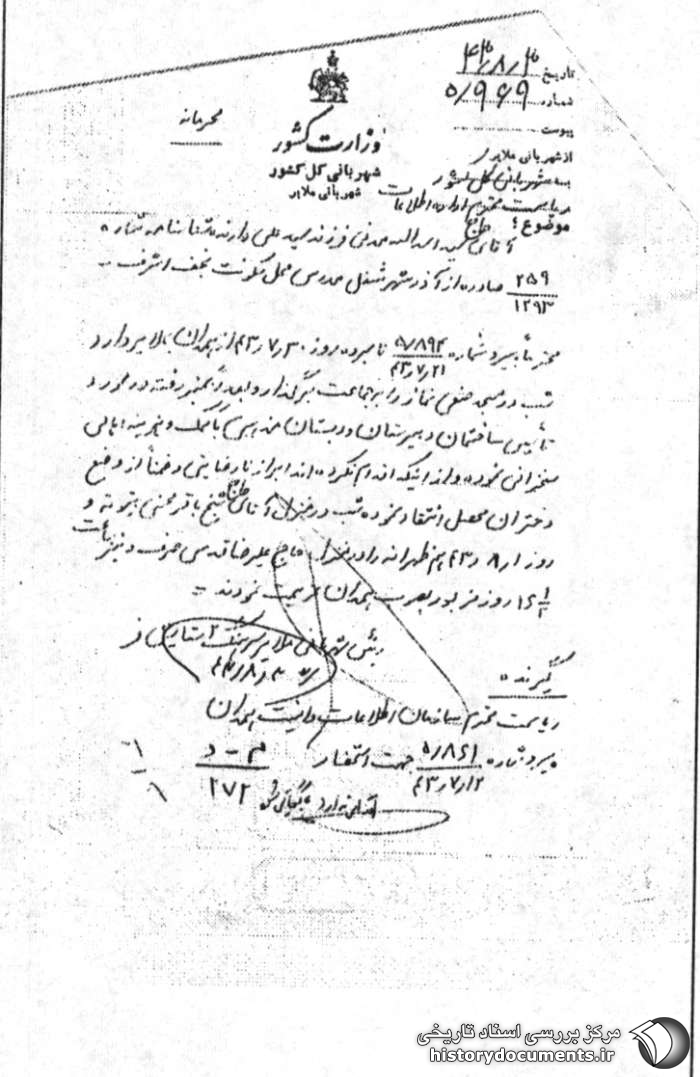 تاریخ ۴۳/۸/۳
شماره ۵/۹۶۹
پیوست
محرمانه
وزارت کشور
شهربانی کل کشور
شهربانی ملایر
از شهربانی ملایر
به شهربانی کل کشور
ریاست محترم اداره اطلاعات
موضوع: آقای حاج سید اسدالله مدنی فرزند سید علی دارنده شناسنامه شماره
۲۵۹
۱۲۹۳
صادره از آذرشهر شغل مدرس محل سکونت نجف اشرف
محترماً پیرو شماره ۵/۸۹۴ نامبرده روز ۴۳/۷/۳۰ از همدان بملایر وارد
۴۳/۷/۲۱
شب در مسجد نماز را بجماعت برگذار و بعداً بمنبر رفته در مورد
تأسیس ساختمان دبیرستان و دبستان مذهبی با کمک و هزینه اهالی
سخنرانی نموده و از اینکه اقدام نکرده اند ابراز نارضایتی و ضمناً از وضع
دختران محصل انتقاد نموده شب در منزل آقای حاج شیخ باقر محسنی بیتوته و
روز ۴۳/۸/۱ هم ظهرانه را در منزل حاج علیرضا قدسی صرف و نیز ساعت
۱۶ روز مزبور بصوب همدان عزیمت نمودند
رئیس شهربانی ملایر سرهنگ ۲
گیرنده
ریاست محترم سازمان اطلاعات و امنیت همدان
پیرو شماره ۵/۸۶۱ جهت استحضار
۴۳/۷/۱۲
م - د
۲۷۲
اقدامی ندارد بایگانی شود
مرکز بررسی اسناد تاریخی
historydocuments.ir